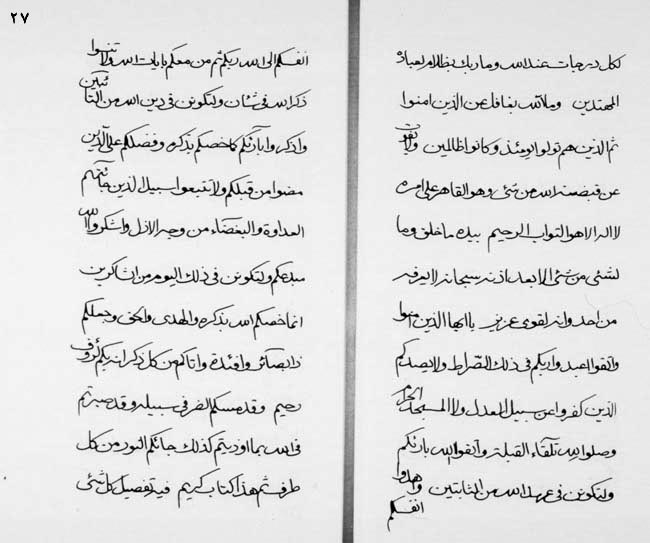 ٢٧
لكل درجات عند الله وما ربك بظلام لعباده
المهتدين وما الله بغافل عن الذين امنوا
ثم الذين هم تولوا يومئذ وكانوا ظالمين ولا
عن قبضته الله من شئ وهو القاهر على امره
لا اله الا هو التواب الرحيم بيده ما خلق وما
لشئ من شئ الا بعد اذنه سبحانه لا يرفع
من احد وانه لقوى عزيز يا ايها الذين امنوا
واتقوا اعبدوا ربكم فى ذلك الصراط ولا يصدنكم
الذين كفروا عن سبيل العدل ولا المسجد الحرام
وصلوا لله تلقاء القبلة واتقوا الله بارئكم
ولتكونن فى عهد الله من الثابتين واهدوا
انفسكم
انفسكم الى الله ربكم ثم من معكم بايات الله ولا تنسوا
ذكر الله فى شان ولتكونن فى دين الله من
واذكروا بارئكم كما خصكم بذكره وفضلكم على الذين
مضوا من قبلكم ولا تتبعوا سبيل الذين
العداوة والبغضاء من وجه الازل واشكروا الله
مبدعكم ولتكونن فى ذلك اليوم من الشاكرين
انما خصكم الله بذكره والهدى والحق وجعلكم
ذا بصائر وافئدة واتاكم من كل ذكر انه بكم لرؤف
رحيم وقد مسكم الضر فى سبيله وقد صبرتم
فى الله بما اوذيتم كذلك جائكم النور من كل
طرف ثم هذا كتاب كريم فيه تفصيل كل شئ